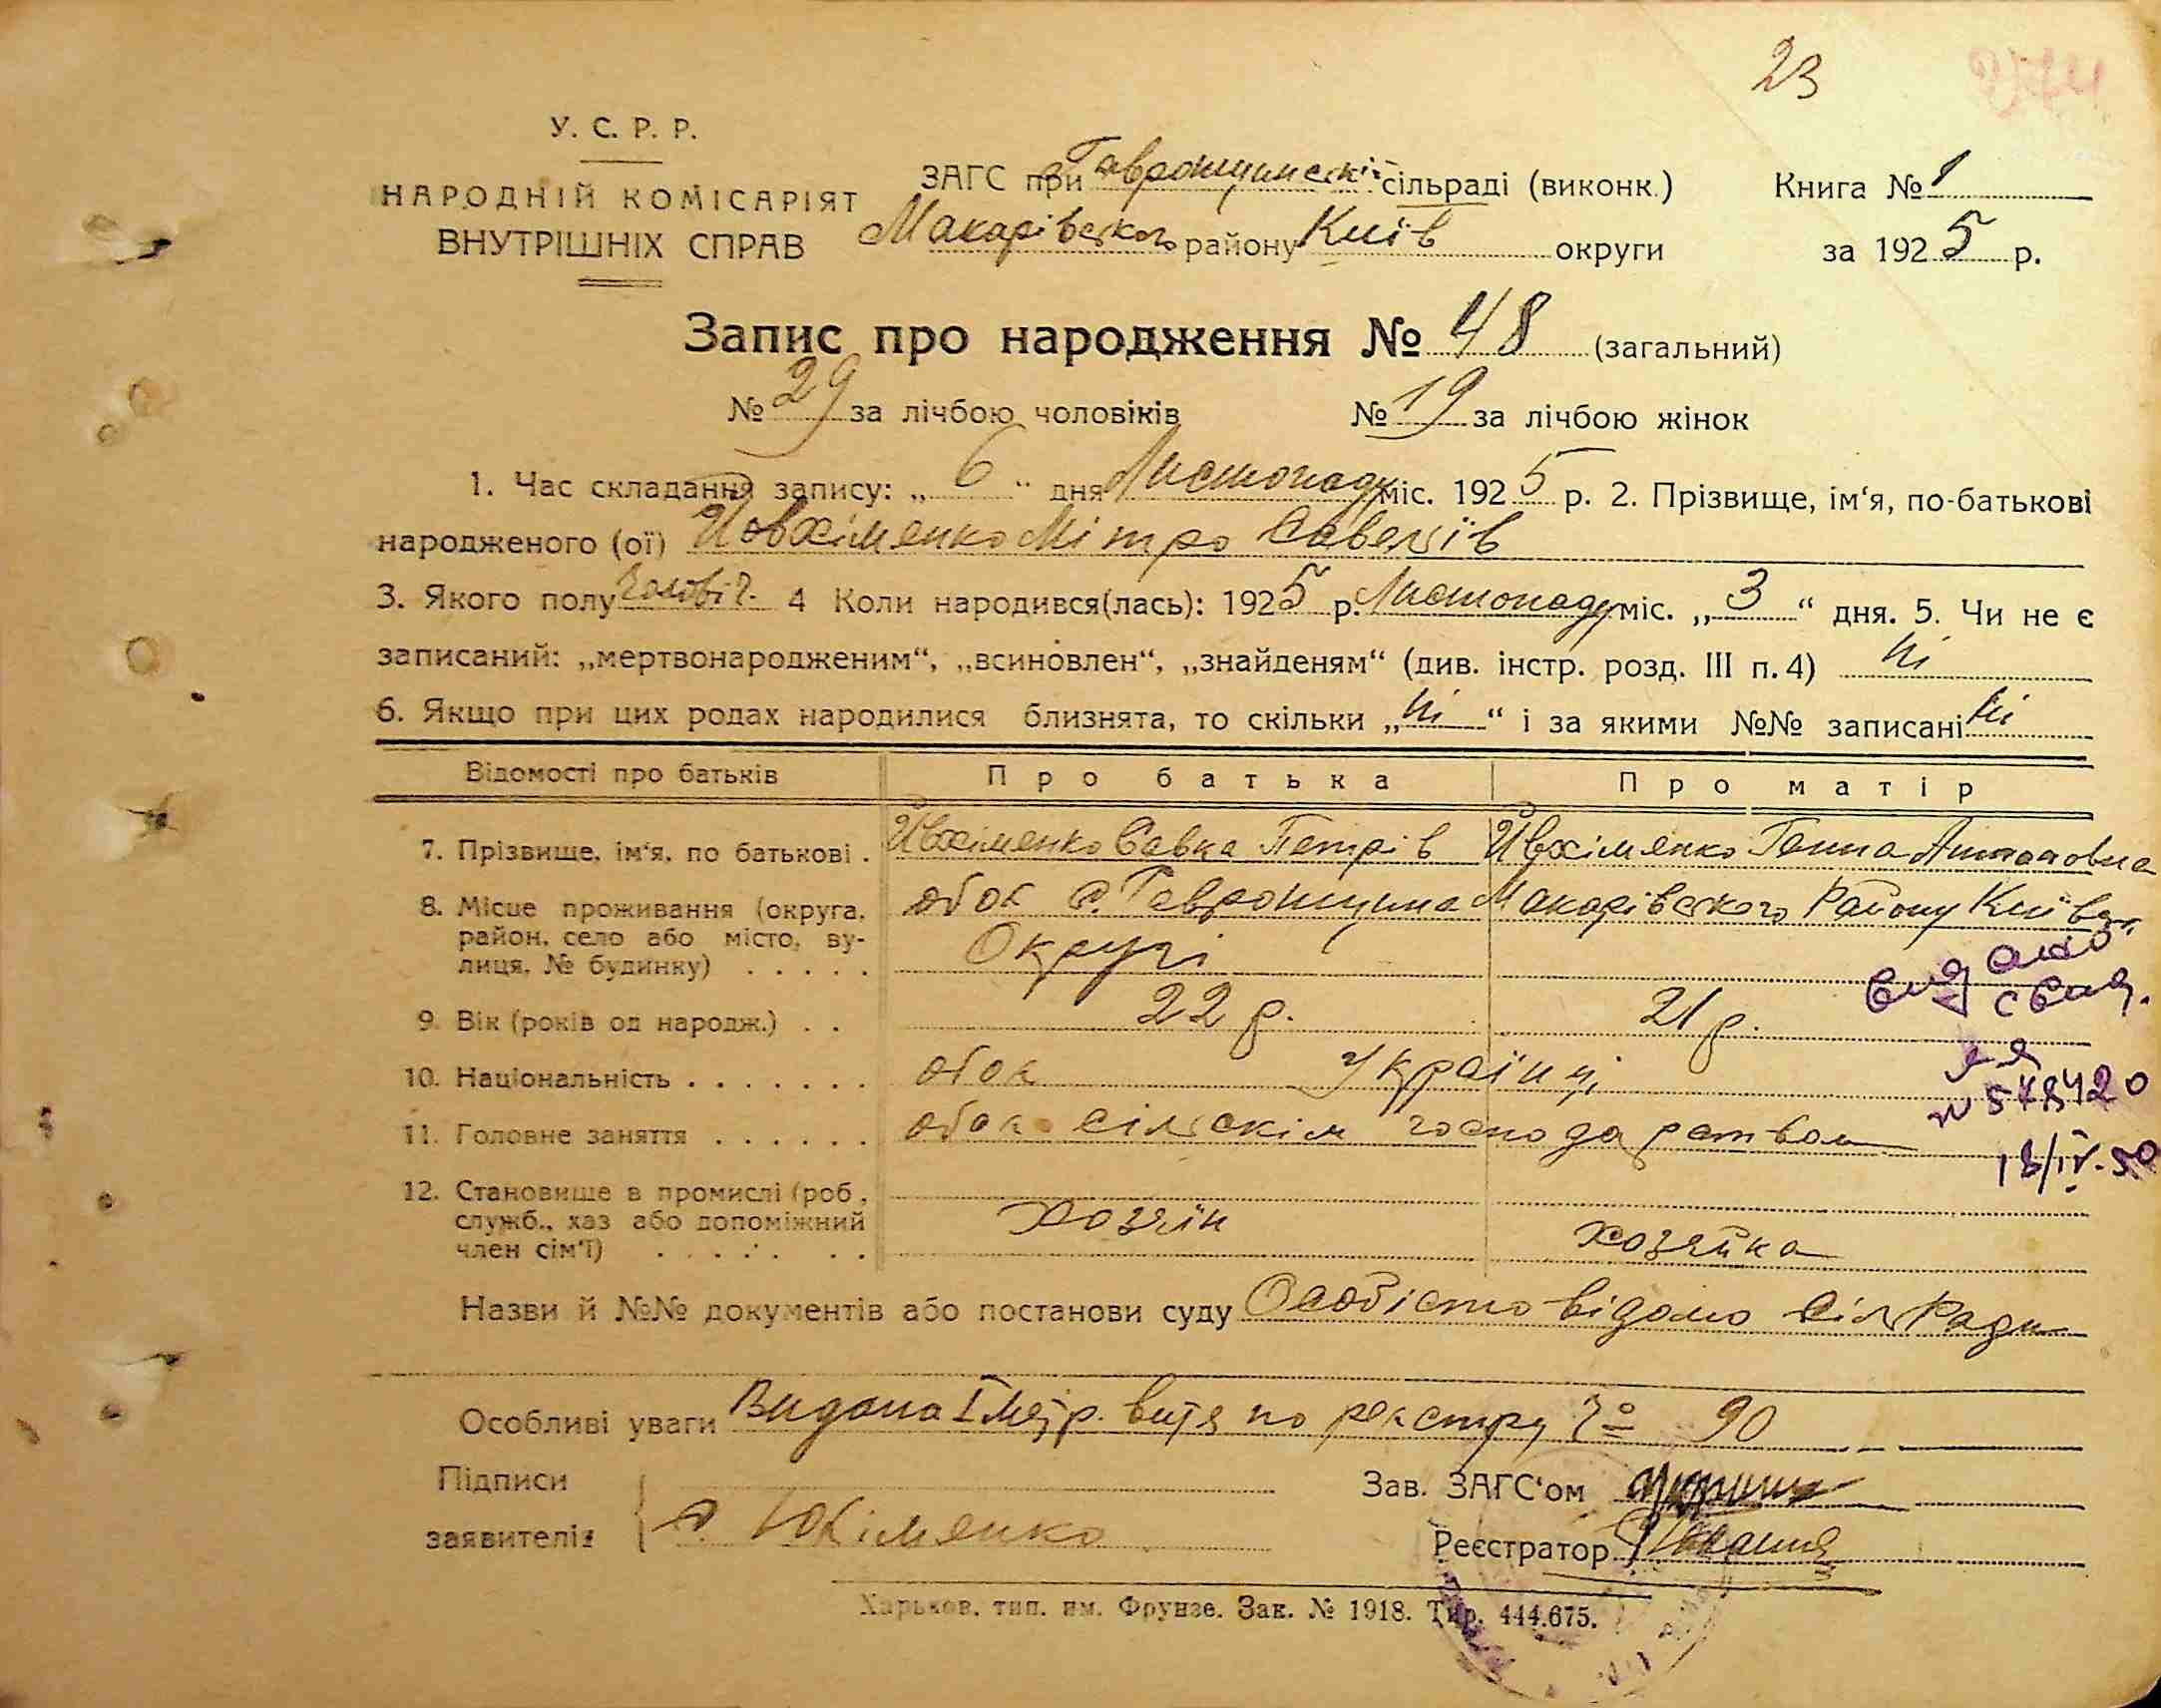 23
У. С. Р. Р.
НАРОДНІЙ КОМІСАРІЯТ
ВНУТРІШНІХ СПРАВ
ЗАГС при Гавронщинскій сільраді (виконк.)
Макарівського району Київ округи
Книга № 1
за 1925 р.
Запис про народження № 48 (загальний)
№ 29 за лічбою чоловіків № 19 за лічбою жінок
1. Час складання запису: „6“ дня Листопаду міс. 1925 р. 2. Прізвище, ім‘я, по-батькові
народженого (ої) Йовхіменко Мітро Савелїів
3. Якого полу чолові?. 4 Коли народився(лась): 1925 р. Листопаду міс. „3“ дня. 5. Чи не є
записаний: „мертвонародженим“, „всиновлен“, „знайденям“ (див. інстр. розд. III п. 4) Ні
6. Якщо при цих родах народилися близнята, то скільки „Ні“ і за якими №№ записані Ні
Відомості про батьків Про батька Про матір
7. Прізвище, ім‘я, по батькові . Йвхіменко Савка Петрів Йвхіменко Ганна Антоновна
8. Місце проживання (округа, обоє с. Гавронщина Макарівского Району Київск
район, село або місто, ву- Округі
лиця, № будинку) . . . . .
видано
свид.
9. Вік (років од народж.) . . 22 р. 21 р.
10. Національність . . . . . . . обоє Українці
№ 578420
11. Головне заняття . . . . . . обоє сілскім господарством
18/IV-50
12. Становище в промислі (роб.,
служб., хаз або допоміжний Хозяін
член сім‘ї) . . . . . . Хозяйка
Назви й №№ документів або постанови суду Особісто відомо Сіл Ради
Особливі уваги Видана І метр. витя по реєстру № 90
Підписи
заявителів Юхіменко
Зав. ЗАГС‘ом
Реєстратор
Харьков, тип. им. Фрунзе. Зак. № 1918. Тир. 444.675.